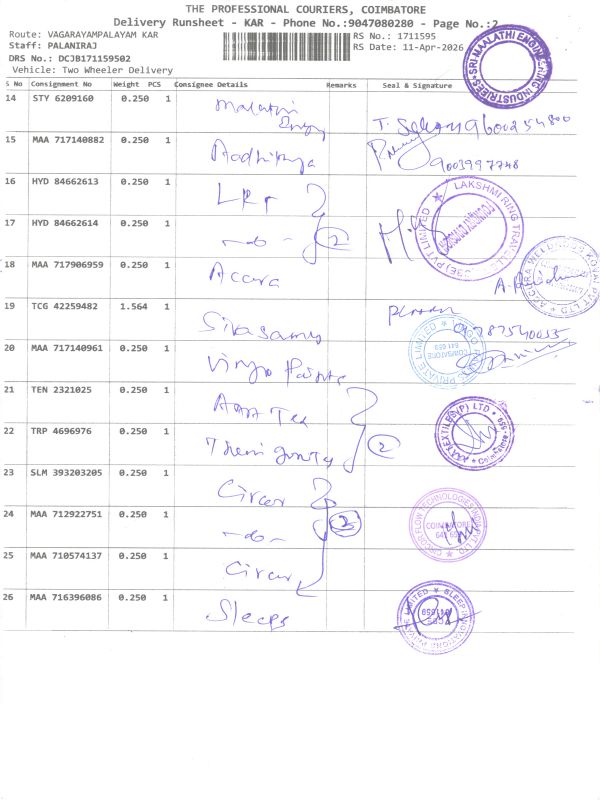 THE PROFESSIONAL COURIERS, COIMBATORE
Delivery Runsheet - KAR - Phone No.:9047080280 - Page No.:2
Route: VAGARAYAMPALAYAM KAR
RS No.: 1711595
Staff: PALANIRAJ
RS Date: 11-Apr-2026
DRS No.: DCJB171159502
Vehicle: Two Wheeler Delivery
S No Consignment No Weight PCS Consignee Details Remarks Seal & Signature
14 STY 6209160 0.250 1 Malathi Engg
15 MAA 717140882 0.250 1 9003997748
16 HYD 84662613 0.250 1 LRT
17 HYD 84662614 0.250 1 -do- 2
18 MAA 717906959 0.250 1 Accura
19 TCG 42259482 1.564 1 Sivasamy
20 MAA 717140961 0.250 1
21 TEN 2321025 0.250 1 AAA Tex
22 TRP 4696976 0.250 1 2
23 SLM 393203205 0.250 1 Circor
24 MAA 712922751 0.250 1 -do- 3
25 MAA 710574137 0.250 1 Circor
26 MAA 716396086 0.250 1 Sleeps
SRI MAALATHI ENGINEERING INDUSTRIES
LAKSHMI RING TRAVELLERS (CBE) (P) LIMITED
COIMBATORE 641 659
AAA TEXTILES (P) LTD
CIRCOR FLOW TECHNOLOGIES INDIA PVT LTD
COIMBATORE 641 659
SLEEP INNOVATIONS PRIVATE LIMITED